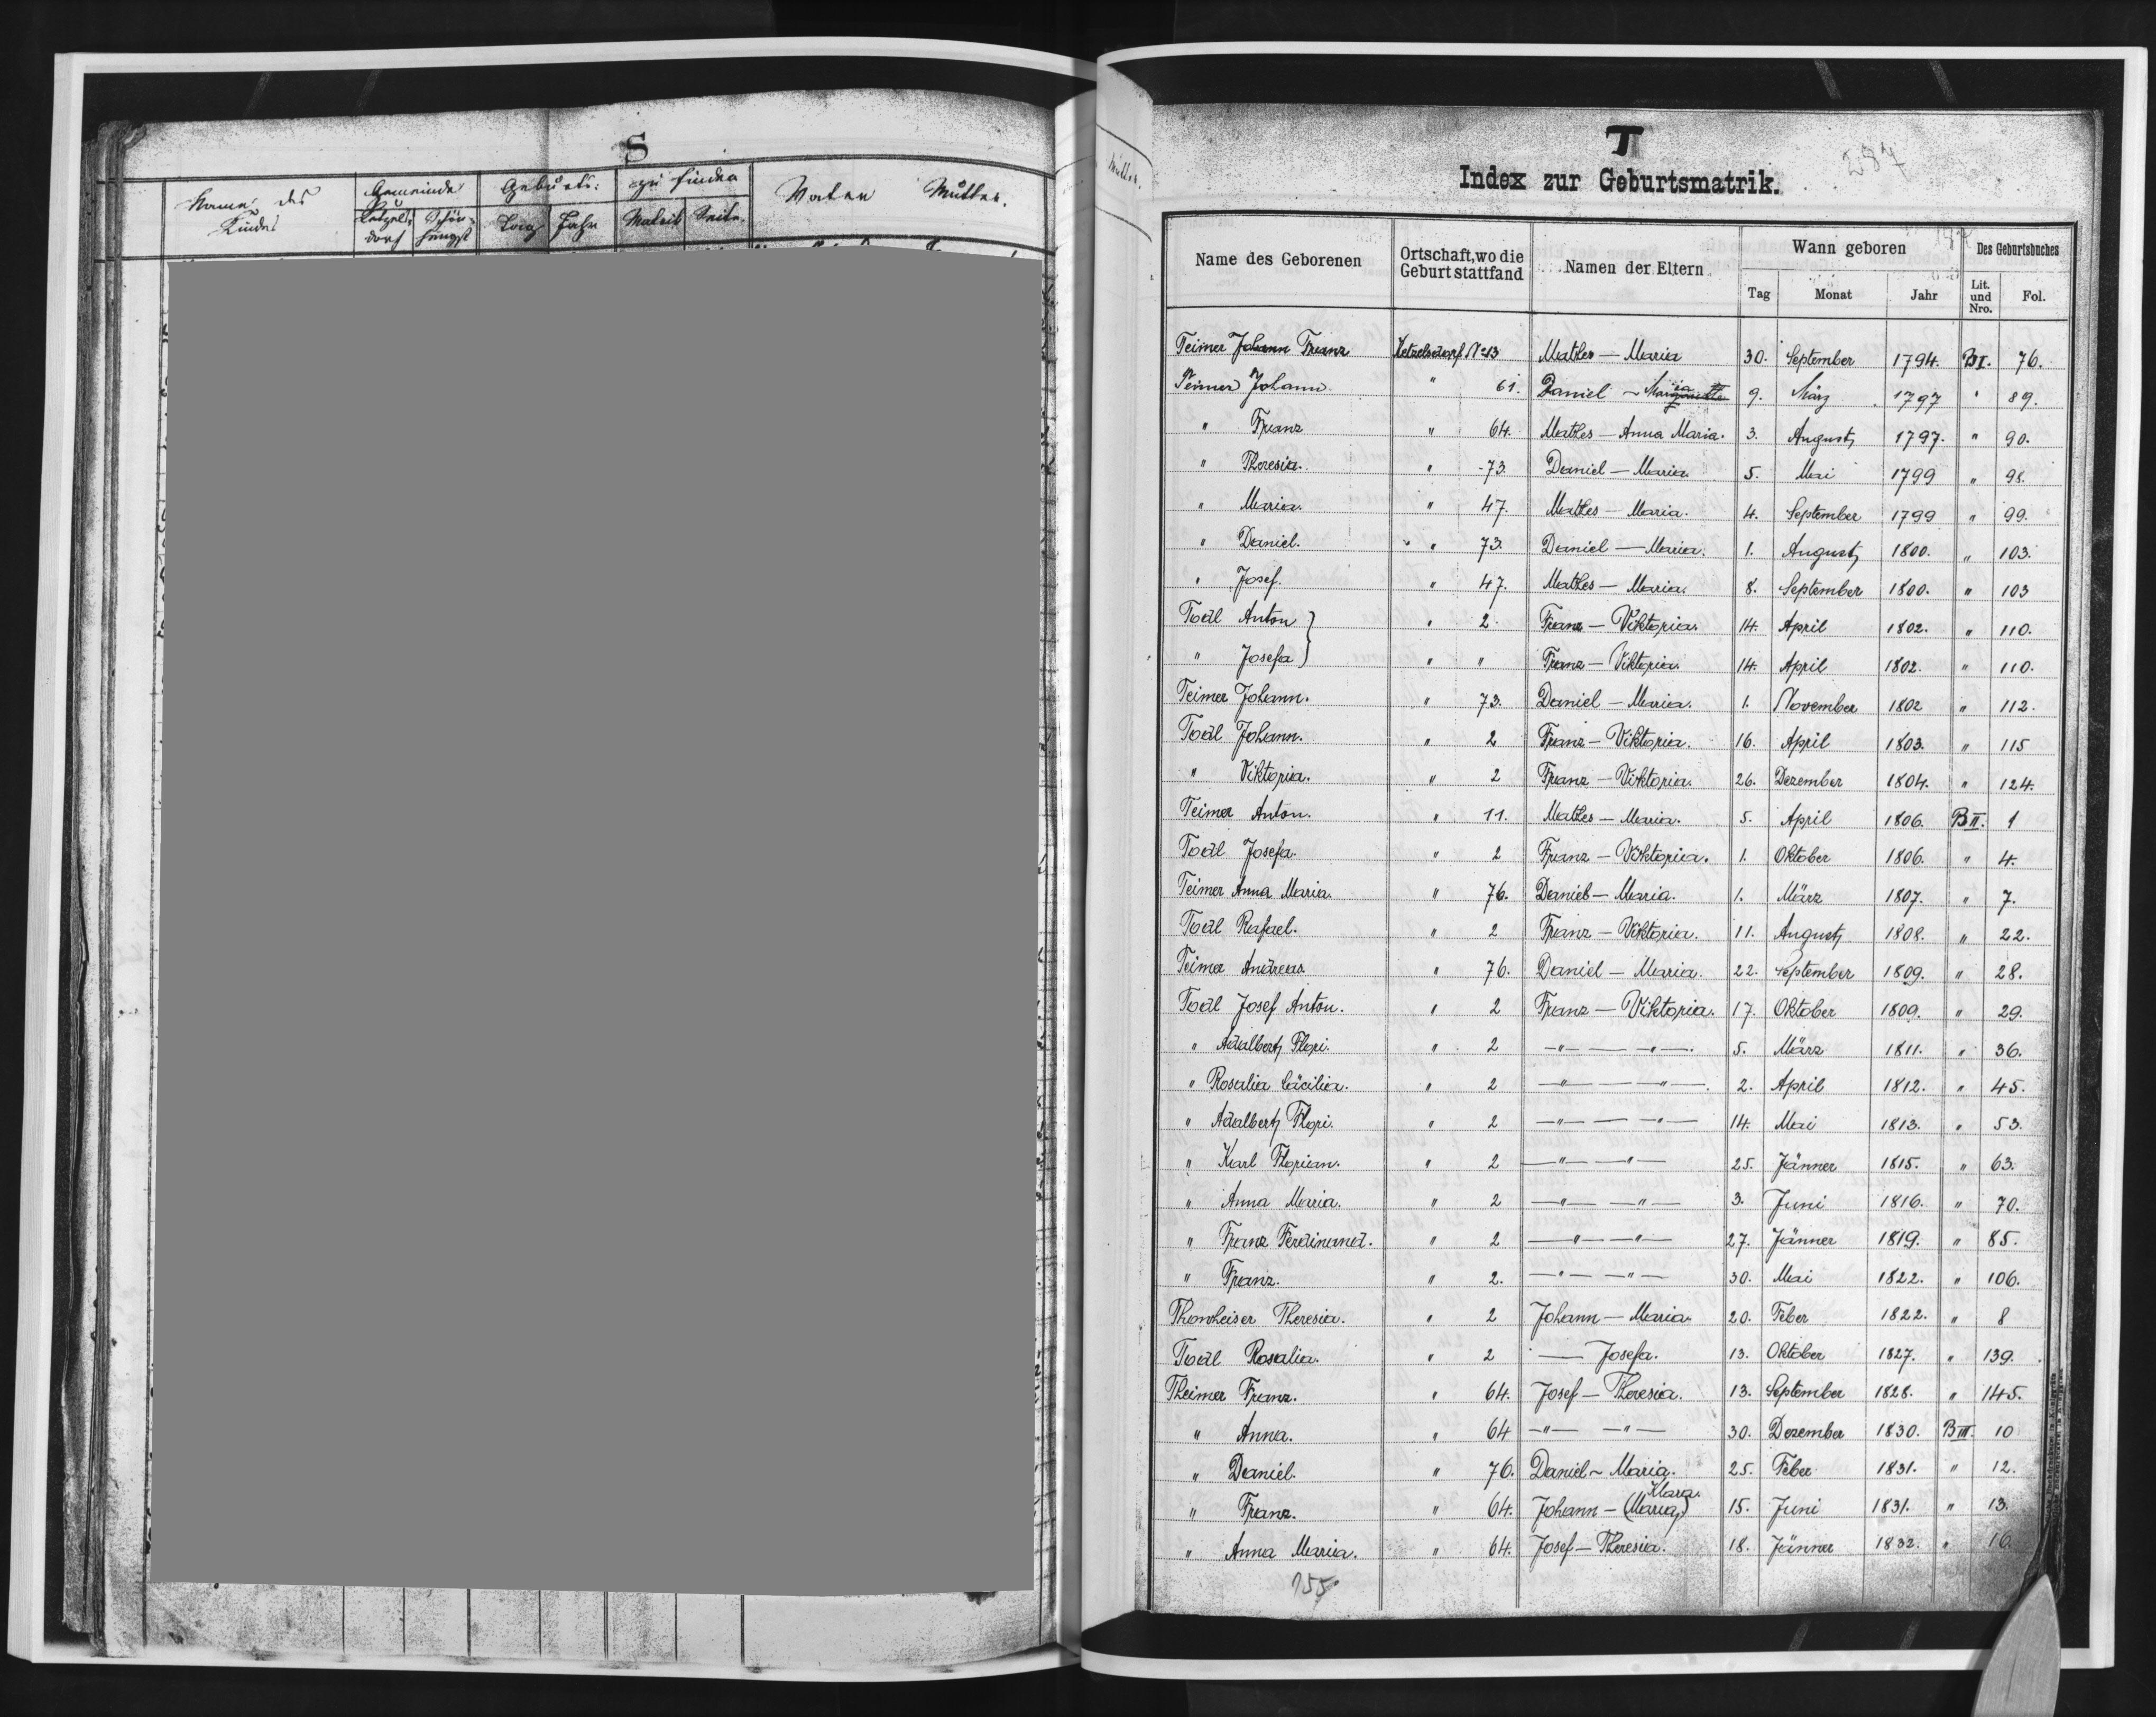 S
Name des Kindes
Gemeinde
zu
dorf
Geburts:
Tag Jahr
zu finden
Matrik Seite.
Vater Mutter.
Mutter.
T
287
Index zur Geburtsmatrik.
Name des Geborenen | Ortschaft, wo die Geburt stattfand | Namen der Eltern | Wann geboren | Des Geburtsbuches
Tag | Monat | Jahr | Lit. und Nro. | Fol.
Teimer Johann Franz Ketzelsdorf No 13 Mathes — Maria 30. September 1794. B I. 76.
Teimer Johann " 61. Daniel — Maria 9. März 1797 " 89.
" Franz " 64. Mathes — Anna Maria. 3. August 1797. " 90.
" Theresia. " 73. Daniel — Maria. 5. Mai 1799 " 98.
" Maria. " 47. Mathes — Maria. 4. September 1799 " 99.
" Daniel. " 73. Daniel — Maria. 1. August 1800. " 103.
" Josef. " 47. Mathes — Maria. 8. September 1800. " 103
Todl Anton " 2 Franz — Viktoria. 14. April 1802. " 110.
" Josefa " " Franz — Viktoria. 14. April 1802. " 110.
Teimer Johann. " 73. Daniel — Maria. 1. November 1802 " 112.
Todl Johann. " 2 Franz — Viktoria. 16. April 1803. " 115
" Viktoria. " 2 Franz — Viktoria. 26. Dezember 1804. " 124.
Teimer Anton. " 11. Mathes — Maria. 5. April 1806. B II. 1
Todl Josefa. " 2 Franz — Viktoria. 1. Oktober 1806. " 4.
Teimer Anna Maria. " 76. Daniel — Maria. 1. März 1807. " 7.
Todl Rafael. " 2 Franz — Viktoria. 11. August 1808. " 22.
Teimer Andreas. " 76. Daniel — Maria. 22. September 1809. " 28.
Todl Josef Anton. " 2 Franz — Viktoria. 17. Oktober 1809. " 29.
" Adalbert Flori. " 2 —"— —"—. 5. März 1811. " 36.
" Rosalia Cäcilia. " 2 —"— —"—. 2. April 1812. " 45.
" Adalbert Flori. " 2 —"— —"— 14. Mai 1813. " 53.
" Karl Florian. " 2 —"— —"— 25. Jänner 1815. " 63.
" Anna Maria. " 2 —"— —"— 3. Juni 1816. " 70.
" Franz Ferdinand. " 2 —"— —"— 27. Jänner 1819. " 85.
" Franz. " 2. —"— —"— 30. Mai 1822. " 106.
Thonheiser Theresia. " 2 Johann — Maria. 20. Feber 1822. " 8
Todl Rosalia. " 2 — Josefa. 13. Oktober 1827. " 139.
Theimer Franz. " 64. Josef — Theresia. 13. September 1828. " 145.
" Anna. " 64 —"— —"— 30. Dezember 1830. B III. 10
" Daniel. " 76. Daniel — Maria. 25. Feber 1831. " 12.
" Franz. " 64. Johann — (Maria) Klara. 15. Juni 1831. " 13.
" Anna Maria. " 64. Josef — Theresia. 18. Jänner 1832. " 16.
155